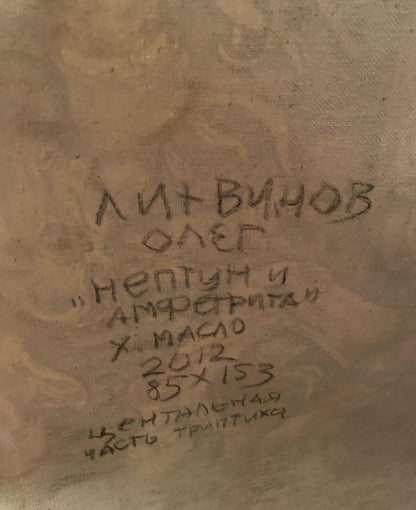 ЛИТВИНОВ
ОЛЕГ
"НЕПТУН И
АМФЕТРИТА"
Х. МАСЛО
2012
85 X 153
ЦЕНТАЛЬНАЯ
ЧАСТЬ ТРИПТИХА